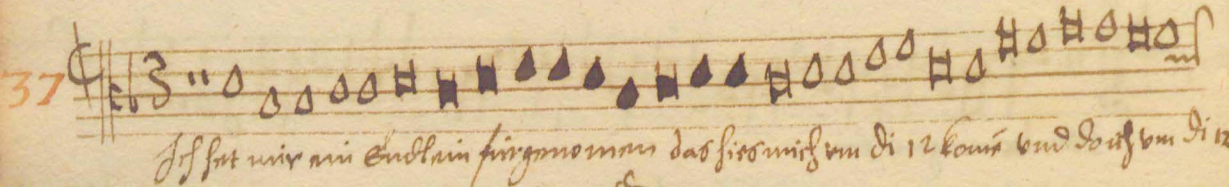 37
Ich het mir ein Endlein fürgenomen das hies mich vm di 12 komē vnd do ich vm di 12